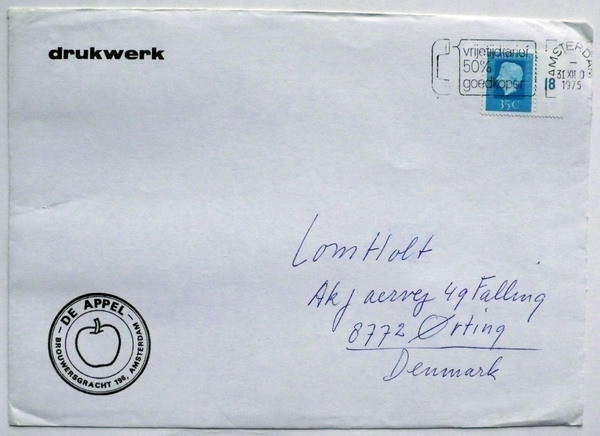 drukwerk
vrijetijdtarief
50%
goedkoper
AMSTERDAM
31 XII 0
1975
18
35c
Lom Holt
Akjaervej 49 Falling
8772 Ørting
Denmark
DE APPEL
BROUWERSGRACHT 196, AMSTERDAM